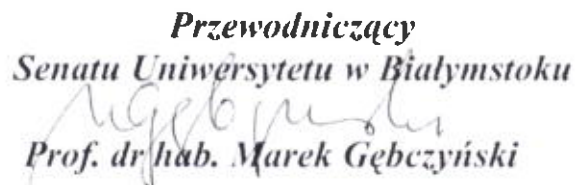 Przewodniczący
Senatu Uniwersytetu w Białymstoku
Prof. dr hab. Marek Gębczyński